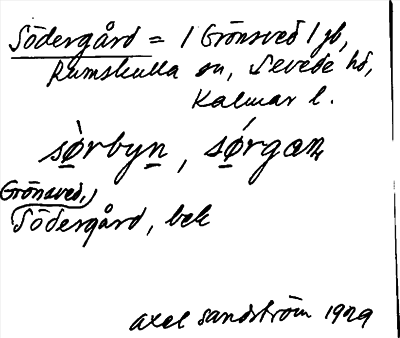 Södergård = / Grönsved / jb,
Rumskulla sn, Sevede hd,
Kalmar l.
sørbyn, sørgæɳ
Grönsved,
Södergård, bek
Axel Sandström 1929